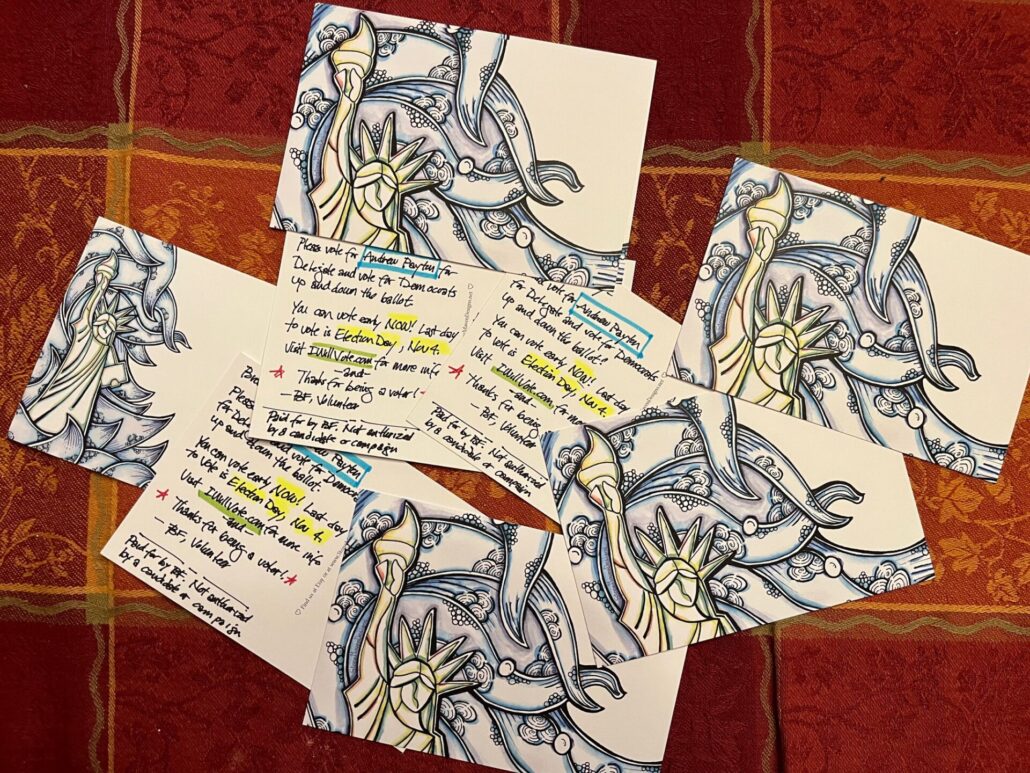 Please vote for Andrew Payton for
Delegate and vote for Democrats
up and down the ballot.
You can vote early NOW! Last day
to vote is Election Day, Nov 4.
Visit IWillVote.com for more info
-and-
Thanks for being a voter!
- B.F., Volunteer
Paid for by B.F. Not authorized
by a candidate or campaign
vote for Andrew Payton
for Delegate and vote for Democrats
up and down the ballot.
You can vote early NOW! Last day
to vote is Election Day, Nov 4.
Visit IWillVote.com for more
-and-
Thanks for being
- B.F., Volunteer
Paid for by B.F. Not authorized
by a candidate or campaign
Please
for Del and vote Payton
up and down the ballot. Democra
You can vote early NOW! Last day
to vote is Election Day, Nov 4.
Visit IWillVote.com for more info
-and-
Thanks for being a voter!
- B.F., Volunteer
Paid for by B.F. Not authorized
by a candidate or campaign
Find us at Etsy or at www.